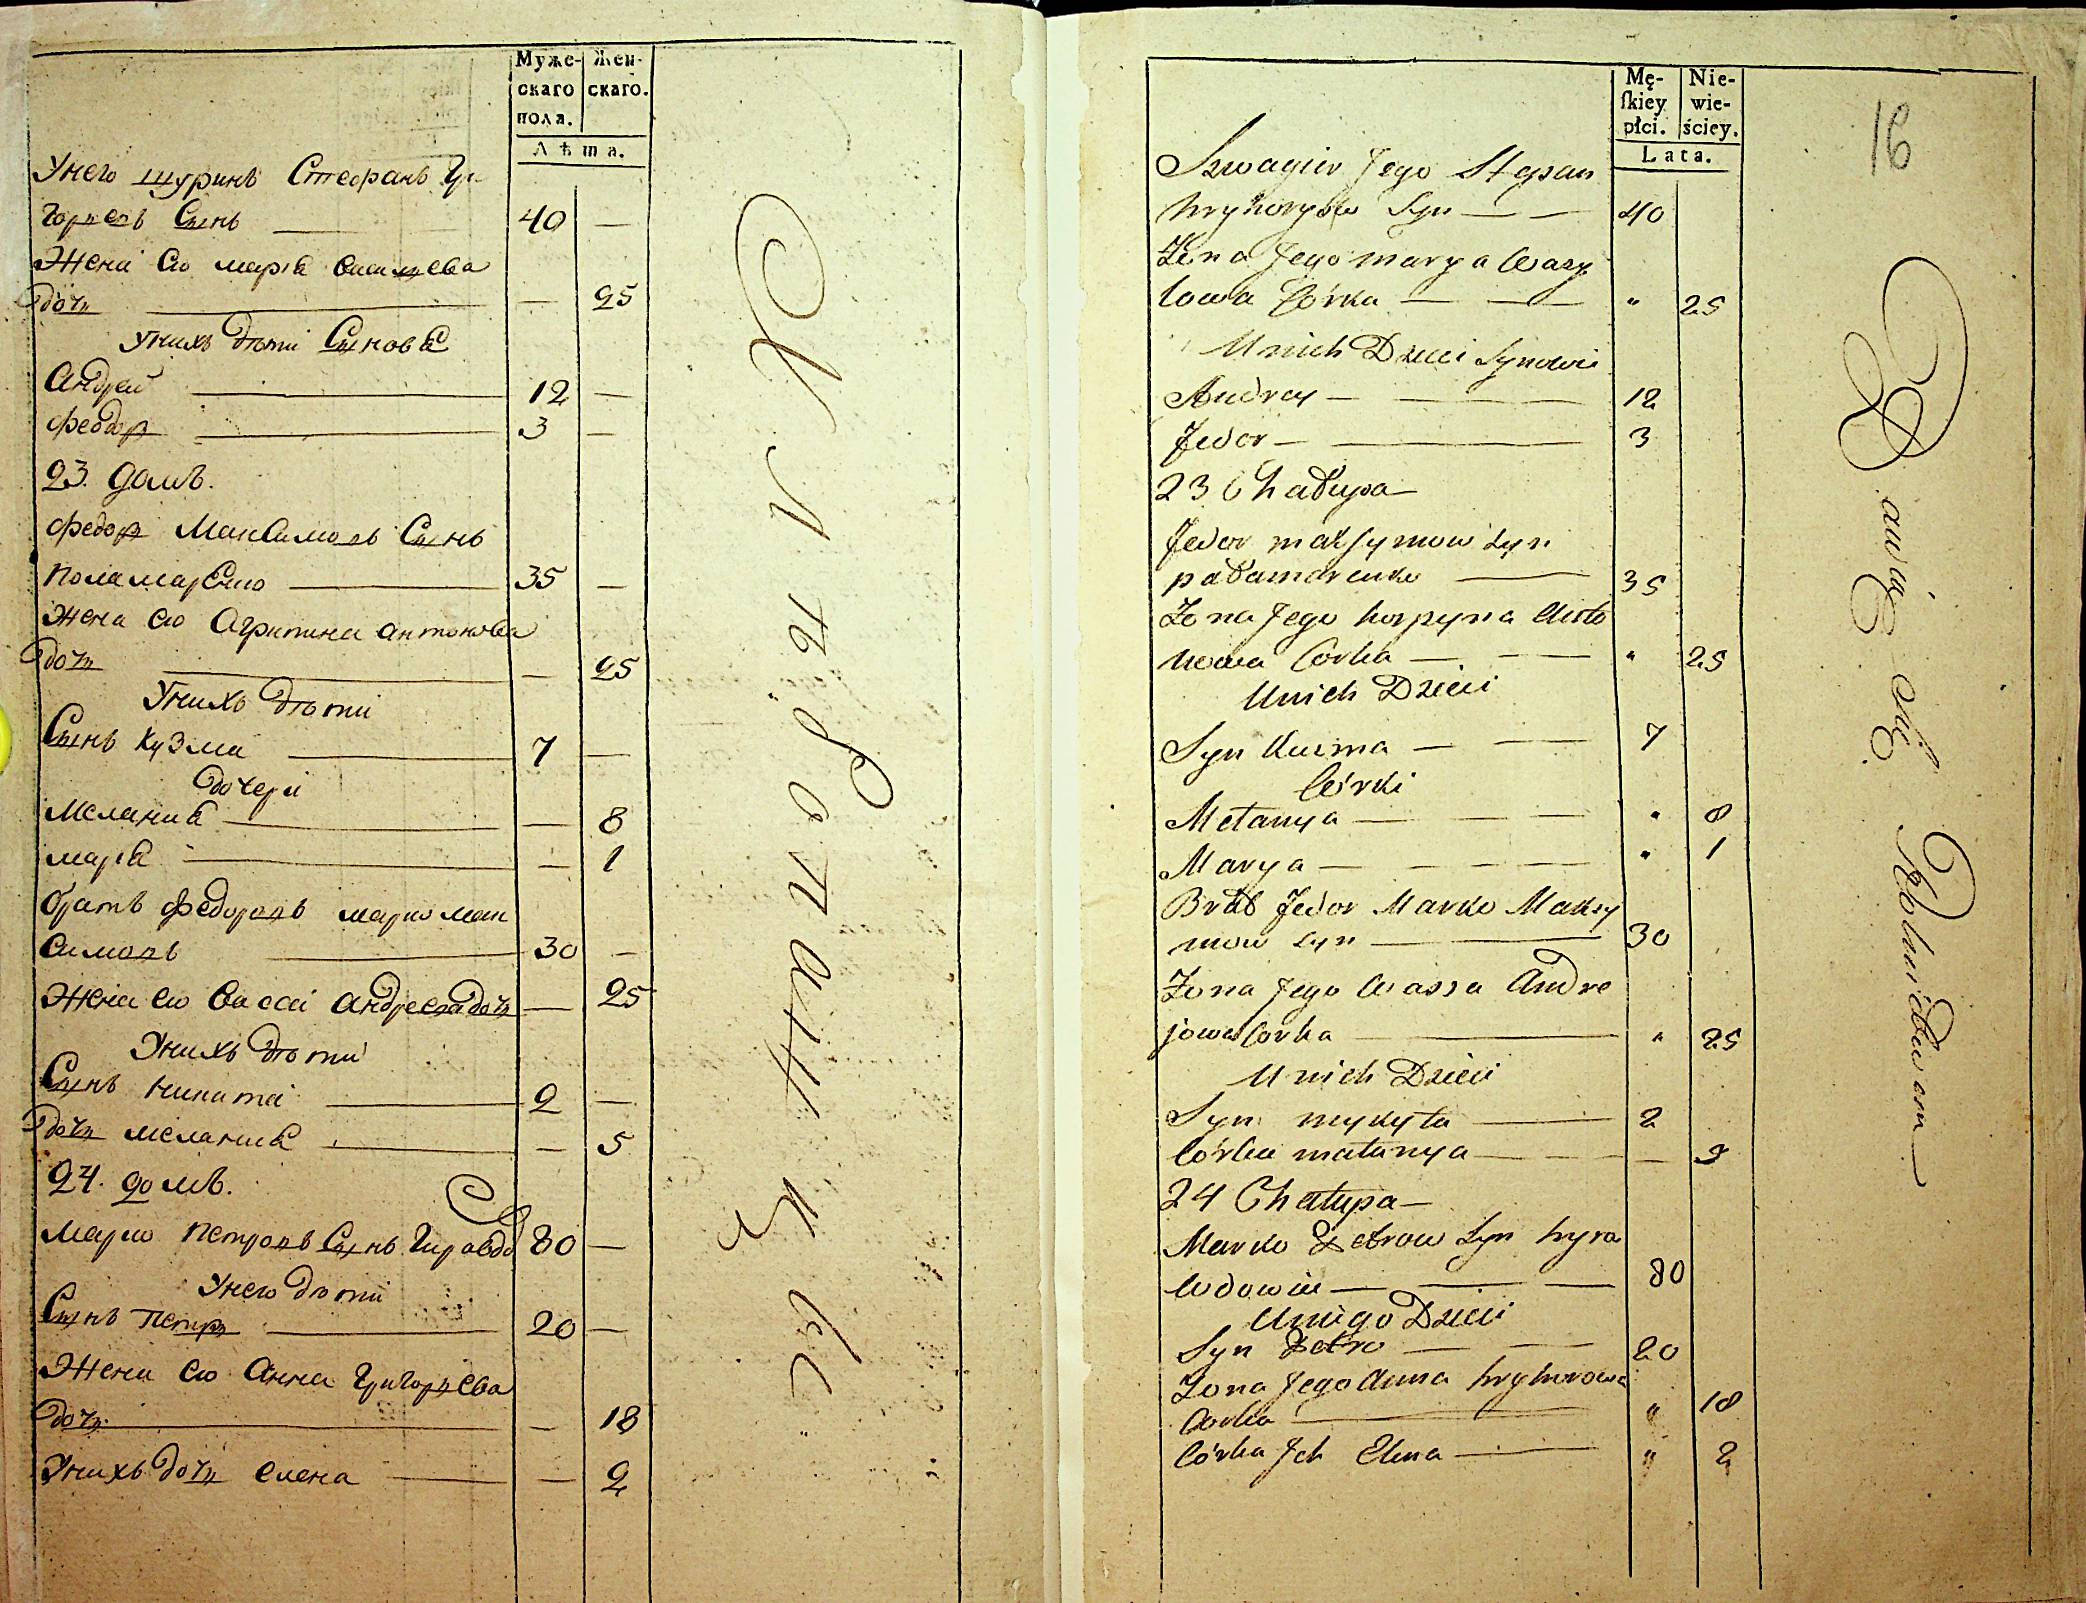 Муже-
скаго
пола.
Жен-
скаго.
Лѣта.
Унего шуринъ Стефанъ Гри
горьевъ Сынъ — 40 —
Жена его марія васильева
дочь — — 25
Унихъ дѣти Сыновя
Андрей — 12 —
Федоръ — 3 —
23. домъ.
Федоръ Максимовъ Сынъ
поламаренко — 35 —
Жена его Агрипина антонова
дочь — — 25
Унихъ дѣти
Сынъ Кузма — 7 —
дочери
Меланія — — 8
марія — — 1
братъ Федоровъ марко мак
симовъ — 30 —
Жена его васса андреева дочь — 25
Унихъ дѣти
Сынъ никита — 2 —
дочь меланія — — 5
24. домъ.
марко петровъ Сынъ 80 —
Унего дѣти
Сынъ петръ — 20 —
Жена его Анна Григорьева
дочь. — — 18
Унихъ дочь елена — — 2
16
Mę-
ſkiey
płci.
Nie-
wie-
ściey.
Lata.
Szwagier Jego Stepan
hryhorysów Syn — — 40
Żona Jego marya Wasy
lowa Córka — — " 25
Unich Dzieci Synowie
Andrey — — 12
Fedor — — 3
23 Chałupa —
Fedor maksymow syn
pałamarenko — 35
Żona Jego horpyna Anto
nowa Corka — — " 25
Unich Dzieci
Syn Kuzma — — 7
Córki
Mełanya — — — " 8
Marya — — — " 1
Brat Fedor Marko Maksy
mow syn — — 30
Żona Jego Wassa Andre
jowa Corka — " 25
Unich Dzieci
Syn mykyta — 2
Córka małanya — — — — 5
24 Chałupa —
Marko Petrow Syn hyra
— — — 80
Uniego Dzieci
Syn Petro — — 20
Żona Jego Anna hryhorowa
Corka — " 18
Córka Ich Elena — " 2